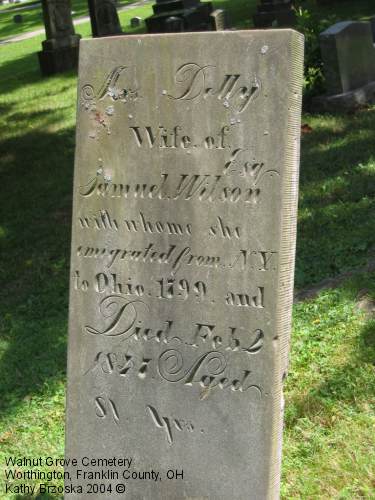 Mrs Dolly.
Wife of
Samuel Wilson Esq
with whome she
emigrated from N.Y.
to Ohio. 1799. and
Died Feb 2
Aged
81 Yrs.
Walnut Grove Cemetery
Worthington, Franklin County, OH
Kathy Brzoska 2004 ©